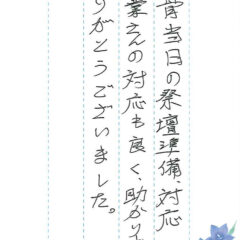 営当日の祭壇準備、対応
業さんの対応も良く、助かりで
りがとうございました。